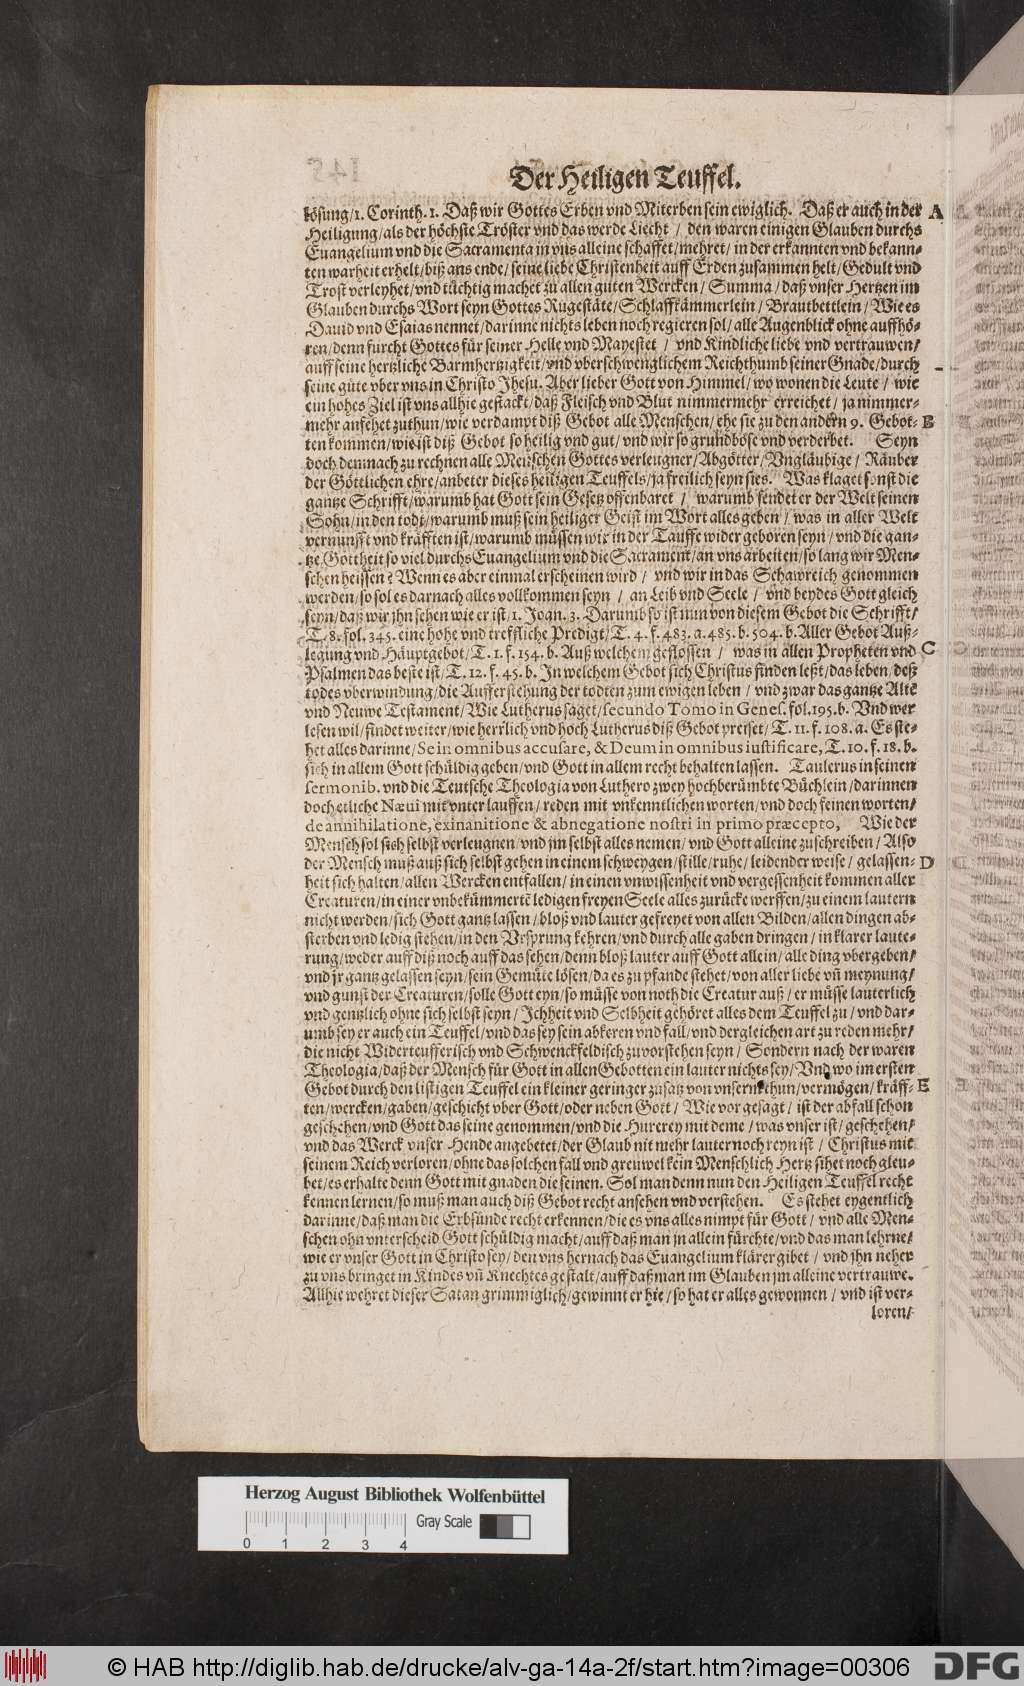 Der Heiligen Teuffel.
lösung/1. Corinth. 1. Daß wir Gottes Erben vnd Miterben sein ewiglich. Daß er auch in der A
Heiligung/als der höchste Tröster vnd das werde Liecht / den waren einigen Glauben durchs
Euangelium vnd die Sacramenta in vns alleine schaffet/mehret/ in der erkannten vnd bekann-
ten warheit erhelt/biß ans ende/seine liebe Christenheit auff Erden zusammen helt/Gedult vnd
Trost verleyhet/vnd tüchtig machet zu allen guten Wercken/ Summa/ daß vnser Hertzen im
Glauben durchs Wort seyn Gottes Rugestäte/Schlaffkämmerlein/ Brautbettlein/ Wie es
Dauid vnd Esaias nennet/darinne nichts leben noch regieren sol/alle Augenblick ohne auffhö-
ren/denn furcht Gottes für seiner Helle vnd Mayestet / vnd Kindliche liebe vnd vertrauwen/
auff seine hertzliche Barmhertzigkeit/vnd vberschwenglichem Reichthumb seiner Gnade/durch
seine güte vber vns in Christo Jhesu. Aber lieber Gott von Himmel/wo wonen die Leute / wie
ein hohes Ziel ist vns allhie gestackt/daß Fleisch vnd Blut nimmermehr erreichet / ja nimmer-
mehr anfehet zuthun/wie verdampt diß Gebot alle Menschen/ehe sie zu den andern 9. Gebot- B
ten kommen/wie ist diß Gebot so heilig vnd gut/vnd wir so grundböse vnd verderbet. Seyn
doch demnach zu rechnen alle Menschen Gottes verleugner/Abgötter/Vngläubige / Räuber
der Göttlichen ehre/anbeter dieses heiligen Teuffels/ja freilich seyn sies. Was klaget sonst die
gantze Schrifft/warumb hat Gott sein Gesetz offenbaret / warumb sendet er der Welt seinen
Sohn/in den todt/warumb muß sein heiliger Geist im Wort alles geben / was in aller Welt
vernunfft vnd kräfften ist/warumb müssen wir in der Tauffe wider geboren seyn/vnd die gan-
tze Gottheit so viel durchs Euangelium vnd die Sacrament/an vns arbeiten/so lang wir Men-
schen heissen? Wenn es aber einmal erscheinen wird / vnd wir in das Schawreich genommen
werden/so sol es darnach alles vollkommen seyn / an Leib vnd Seele / vnd beydes Gott gleich
seyn/daß wir jhn sehen wie er ist/1. Joan. 3. Darumb so ist nun von diesem Gebot die Schrifft/
T. 8. fol. 345. eine hohe vnd treffliche Predigt/T. 4. f. 483. a. 485. b. 504. b. Aller Gebot Auß-
legung vnd Häuptgebot/T. 1. f. 154. b. Auß welchem geflossen / was in allen Propheten vnd C
Psalmen das beste ist/T. 12. f. 45. b. In welchem Gebot sich Christus finden leßt/das leben/deß
todes vberwindung/die Aufferstehung der todten zum ewigen leben / vnd zwar das gantze Alte
vnd Neuwe Testament/Wie Lutherus saget/secundo Tomo in Genes. fol. 195. b. Vnd wer
lesen wil/findet weiter/wie herrlich vnd hoch Lutherus diß Gebot preiset/T. 11. f. 108. a. Es ste-
het alles darinne/Se in omnibus accusare, & Deum in omnibus iustificare, T. 10. f. 18. b.
sich in allem Gott schüldig geben/vnd Gott in allem recht behalten lassen. Taulerus in seinen
sermonib. vnd die Teutsche Theologia von Luthero zwey hochberümbte Büchlein/darinnen
doch etliche Næui mit vnter lauffen/reden mit vnkenntlichen worten/vnd doch feinen worten/
de annihilatione, exinanitione & abnegatione nostri in primo præcepto, Wie der
Mensch sol sich selbst verleugnen/vnd jm selbst alles nemen/vnd Gott alleine zuschreiben/Also
der Mensch muß auß sich selbst gehen in einem schweygen/stille/ruhe/leidender weise/gelassen- D
heit sich halten/allen Wercken entfallen/in einen vnwissenheit vnd vergessenheit kommen aller
Creaturen/in einer vnbekümmertē ledigen freyen Seele alles zurücke werffen/zu einem lautern
nicht werden/sich Gott gantz lassen/bloß vnd lauter gefreyet von allen Bilden/allen dingen ab-
sterben vnd ledig stehen/in den Vrsprung kehren/vnd durch alle gaben dringen/in klarer laute-
rung/weder auff diß noch auff das sehen/denn bloß lauter auff Gott allein/alle ding vbergeben/
vnd jr gantz gelassen seyn/sein Gemüte lösen/da es zu pfande stehet/von aller liebe vn̄ meynung/
vnd gunst der Creaturen/solle Gott eyn/so müsse von noth die Creatur auß/er müsse lauterlich
vnd gentzlich ohne sich selbst seyn/ Ichheit vnd Selbheit gehöret alles dem Teuffel zu/vnd dar-
umb sey er auch ein Teuffel/vnd das sey sein abkeren vnd fall/vnd dergleichen art zu reden mehr/
die nicht Widerteufferisch vnd Schwenckfeldisch zuvorstehen seyn/ Sondern nach der waren
Theologia/daß der Mensch für Gott in allen Gebotten ein lauter nichts sey/Vnd wo im ersten
Gebot durch den listigen Teuffel ein kleiner geringer zusatz von vnserm thun/vermögen/kräff- E
ten/wercken/gaben/geschicht vber Gott/oder neben Gott/ Wie vor gesagt / ist der abfall schon
geschehen/vnd Gott das seine genommen/vnd die Hurerey mit deme / was vnser ist/geschehen/
vnd das Werck vnser Hende angebetet/der Glaub nit mehr lauter noch reyn ist / Christus mit
seinem Reich verloren/ohne das solchen fall vnd greuwel kein Menschlich Hertz sihet noch gleu-
bet/es erhalte denn Gott mit gnaden die seinen. Sol man denn nun den Heiligen Teuffel recht
kennen lernen/so muß man auch diß Gebot recht ansehen vnd verstehen. Es stehet eygentlich
darinne/daß man die Erbsünde recht erkennen/die es vns alles nimpt für Gott/ vnd alle Men-
schen ohn vnterscheid Gott schüldig macht/auff daß man jn allein fürchte/vnd das man lehrne/
wie er vnser Gott in Christo sey/den vns hernach das Euangelium klärer gibet / vnd jhn neher
zu vns bringet in Kindes vn̄ Knechtes gestalt/auff daß man im Glauben jm alleine vertrauwe.
Allhie wehret dieser Satan grimmiglich/gewinnt er hie/so hat er alles gewonnen/ vnd ist ver-
loren/
Herzog August Bibliothek Wolfenbüttel
Gray Scale
0 1 2 3 4
© HAB http://diglib.hab.de/drucke/alv-ga-14a-2f/start.htm?image=00306
DFG